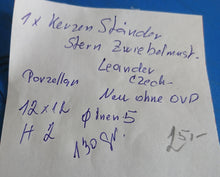 1 x Kerzen Ständer
Stern Zwiebelmust.
Leander
Porzellan Czech-
Neu ohne OVD
12 x 12 ø Inen 5
H 2 130gr.
15,-